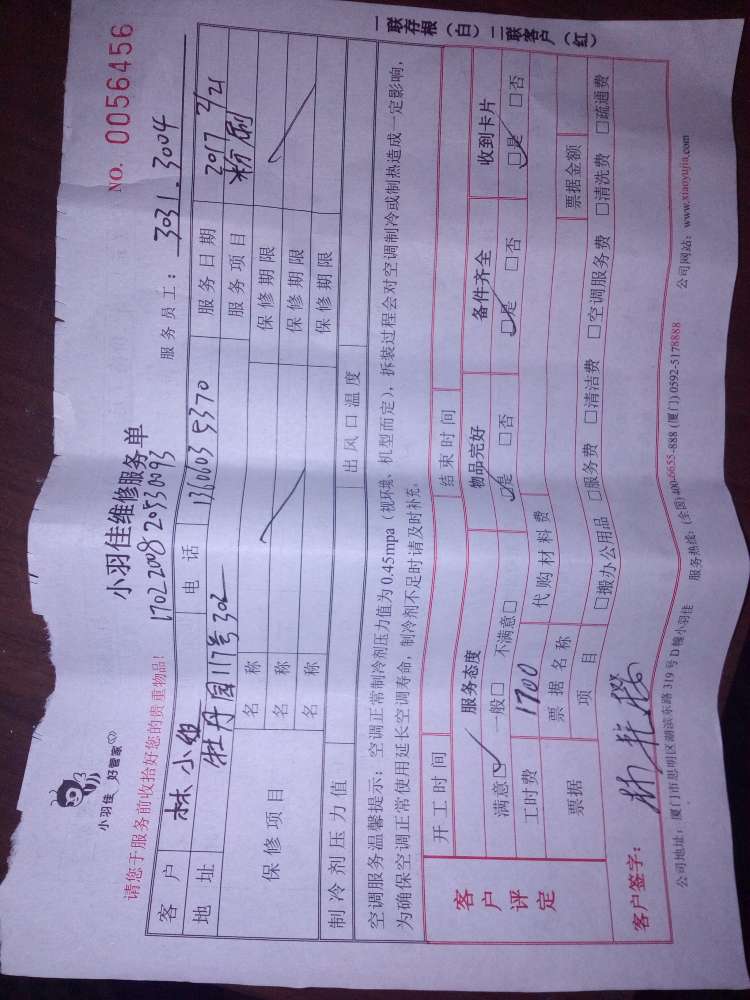 小羽佳 好管家
小羽佳维修服务单
NO. 0056456
17022008 20530093
请您于服务前收拾好您的贵重物品!
服务员工: 3031.3004
客户 林小姐 电话 1360603 5370 服务日期 2017 2/21
地址 牡丹园117号302 服务项目 粉刷
保修项目
名称 保修期限
名称 保修期限
名称 保修期限
制冷剂压力值 出风口温度
空调服务温馨提示:空调正常制冷剂压力值为0.45mpa(视环境、机型而定),拆装过程会对空调制冷或制热造成一定影响,
为确保空调正常使用延长空调寿命,制冷剂不足时请及时补充。
开工时间 结束时间
客户评定
服务态度 物品完好 备件齐全 收到卡片
满意☑ 一般□ 不满意□ ☑是 □否 ☑是 □否 ☑是 □否
工时费 1700 代购材料费
票据 票据名称 票据金额
项目 □搬办公用品 □服务费 □清洁费 □空调服务费 □清洗费 □疏通费
客户签字:
公司地址:厦门市思明区湖滨东路319号D幢小羽佳 服务热线:(全国)400-6655-888 (厦门) 0592-5178888 公司网站:www.xiaoyujia.com
一联存根(白)二联客户(红)